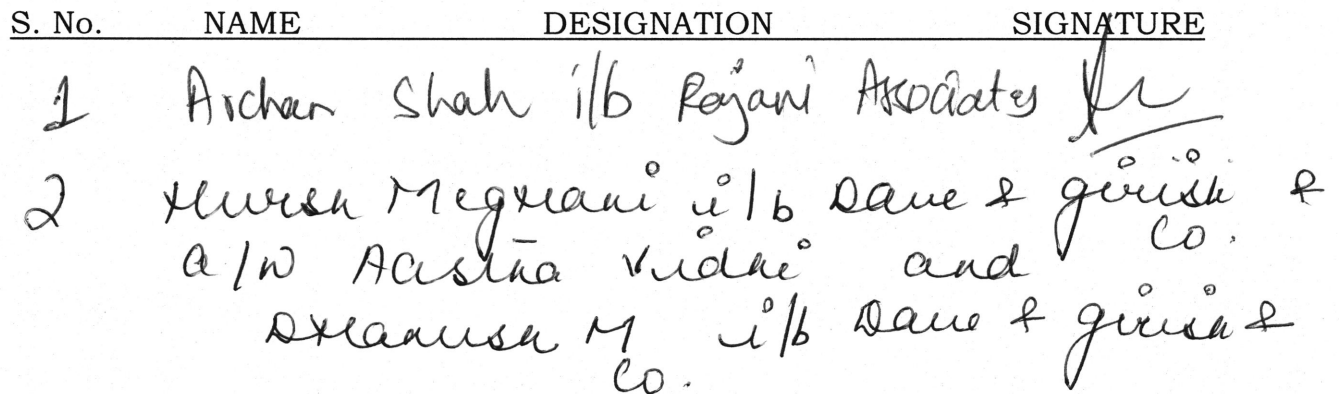 S. No. NAME DESIGNATION SIGNATURE
1 Archan Shah i/b Rajani Associates
2 Hursh Meghani i/b Dave & Girish &
Co.
a/w Aastha Vidhi and
Dhanush M i/b Dave & Girish &
Co.